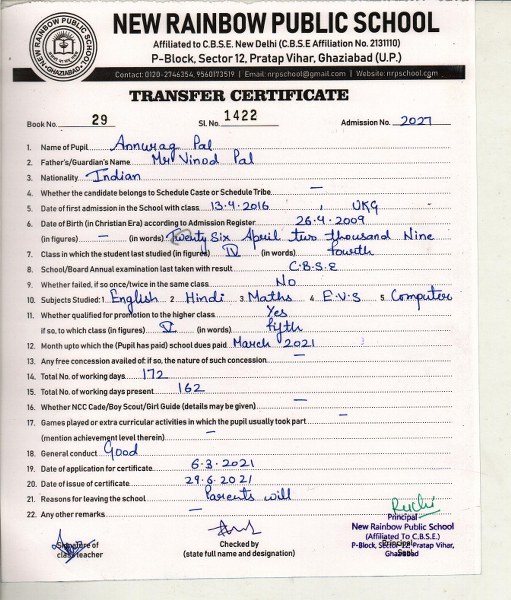 NEW RAINBOW PUBLIC SCHOOL
NEW RAINBOW PUBLIC SCHOOL
GHAZIABAD
Affiliated to C.B.S.E. New Delhi (C.B.S.E Affiliation No. 2131110)
P-Block, Sector 12, Pratap Vihar, Ghaziabad (U.P.)
Contact: 0120-2746354, 9560173519 | Email: nrpschool@gmail.com | Website: nrpschool.com
TRANSFER CERTIFICATE
Book No. 29 Sl. No. 1422 Admission No. 2027
1. Name of Pupil Annurag Pal
2. Father's/Guardian's Name Mr Vinod Pal
3. Nationality Indian
4. Whether the candidate belongs to Schedule Caste or Schedule Tribe —
5. Date of first admission in the School with class 13.4.2016 , UKG
6. Date of Birth (in Christian Era) according to Admission Register 26.4.2009
(in figures) — (in words) Twenty Six April two thousand Nine
7. Class in which the student last studied (in figure) IV (in words) fourth
8. School/Board Annual examination last taken with result C.B.S.E
9. Whether failed, if so once/twice in the same class No
10. Subjects Studied: 1 English 2. Hindi 3. Maths 4. E.V.S 5. Computer
11. Whether qualified for promotion to the higher class Yes
if so, to which class (in figures) V (in words) fyfth
12. Month upto which the (Pupil has paid) school dues paid March 2021
13. Any free concession availed of: if so, the nature of such concession —
14. Total No. of working days 172
15. Total No. of working days present 162
16. Whether NCC Cade/Boy Scout/Girl Guide (details may be given) —
17. Games played or extra curricular activities in which the pupil usually took part —
(mention achievement level therein) —
18. General conduct Good
19. Date of application for certificate 6.3.2021
20. Date of issue of certificate 29.6.2021
21. Reasons for leaving the school Parents will
22. Any other remarks —
Ruchi
Principal
New Rainbow Public School
(Affiliated To C.B.S.E.)
P-Block, Sector-12, Pratap Vihar,
Ghaziabad
Signature of
class teacher
Checked by
(state full name and designation)
Principal
Seal